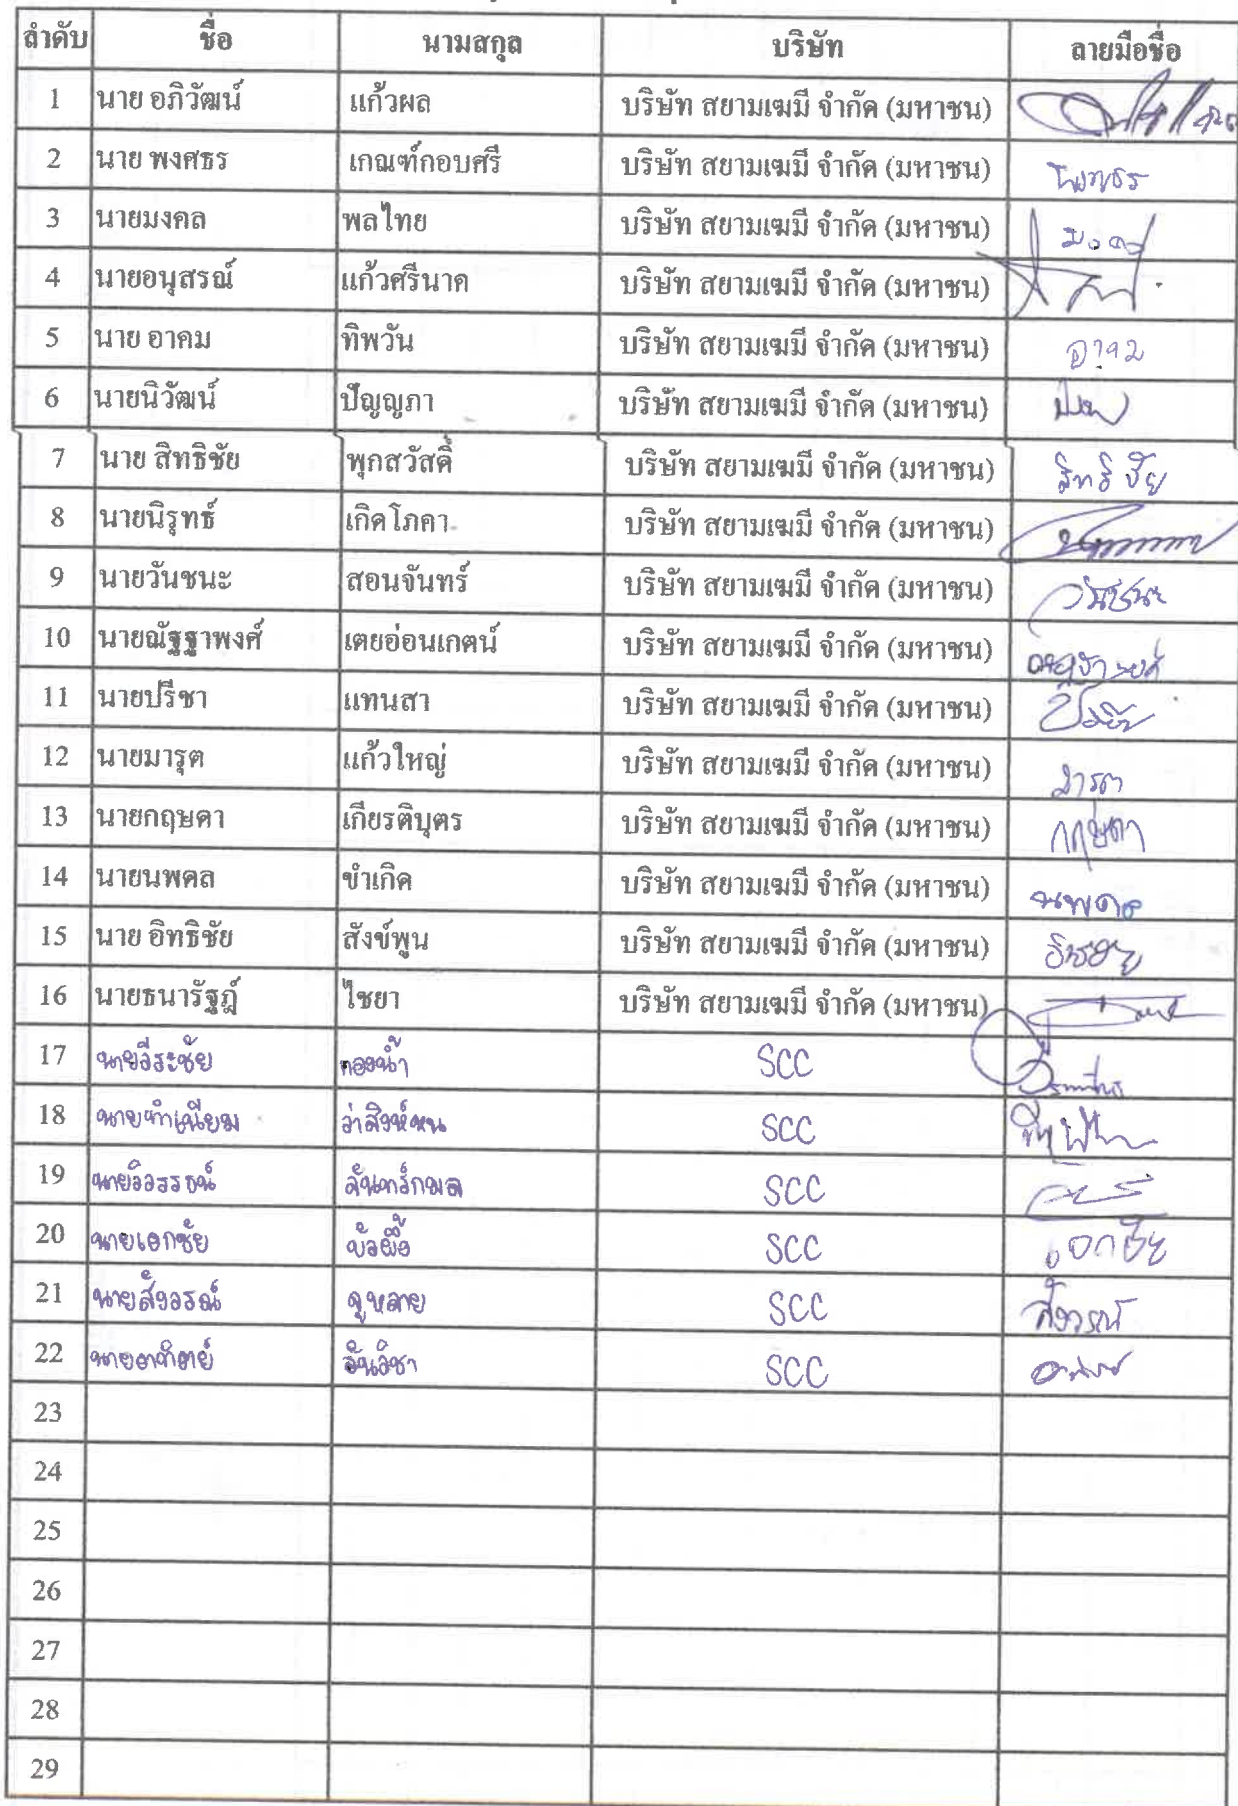 ลำดับ ชื่อ นามสกุล บริษัท ลายมือชื่อ
1 นาย อภิวัฒน์ แก้วผล บริษัท สยามเฆมี จำกัด (มหาชน)
2 นาย พงศธร เกณฑ์กอบศรี บริษัท สยามเฆมี จำกัด (มหาชน)
3 นายมงคล พลไทย บริษัท สยามเฆมี จำกัด (มหาชน)
4 นายอนุสรณ์ แก้วศรีนาค บริษัท สยามเฆมี จำกัด (มหาชน)
5 นาย อาคม ทิพวัน บริษัท สยามเฆมี จำกัด (มหาชน) อาคม
6 นายนิวัฒน์ ปัญญภา บริษัท สยามเฆมี จำกัด (มหาชน)
7 นาย สิทธิชัย พุกสวัสดิ์ บริษัท สยามเฆมี จำกัด (มหาชน) สิทธิชัย
8 นายนิรุทธ์ เกิดโภคา บริษัท สยามเฆมี จำกัด (มหาชน)
9 นายวันชนะ สอนจันทร์ บริษัท สยามเฆมี จำกัด (มหาชน) วันชนะ
10 นายณัฐฐาพงศ์ เตยอ่อนเกตน์ บริษัท สยามเฆมี จำกัด (มหาชน)
11 นายปรีชา แทนสา บริษัท สยามเฆมี จำกัด (มหาชน)
12 นายมารุต แก้วใหญ่ บริษัท สยามเฆมี จำกัด (มหาชน) มารุต
13 นายกฤษดา เกียรติบุตร บริษัท สยามเฆมี จำกัด (มหาชน) กฤษดา
14 นายนพดล ขำเกิด บริษัท สยามเฆมี จำกัด (มหาชน) นพดล
15 นาย อิทธิชัย สังข์พูน บริษัท สยามเฆมี จำกัด (มหาชน)
16 นายธนารัฐฎ์ ไชยา บริษัท สยามเฆมี จำกัด (มหาชน)
17 นายวีระชัย ทองน้ำ SCC
18 นายทำเนียม ว่าสิงห์หน SCC
19 SCC
20 นายเอกชัย บัวผึ้อ SCC เอกชัย
21 นายสังวรณ์ จูหลาย SCC สังวรณ์
22 นายอาทิตย์ อินวิชา SCC
23
24
25
26
27
28
29